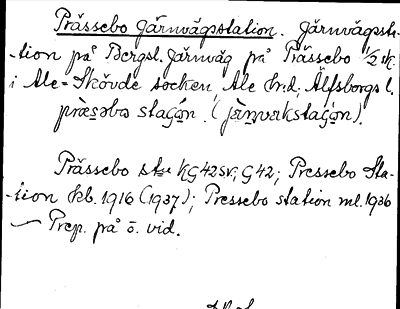 Prässebo Järnvägsstation. Järnvägssta-
-tion på Bergsl. Järnväg på Prässebo 1/2 mt.
i Ale-Skövde socken, Ale hrd, Älfsborgs l.
præsəbo staʃón. (jæ̀ɳvækstaʃón).
Prässebo stn KG42SV; G42; Pressebo Sta-
-tion kb. 1916 (1937); Pressebo station ml. 1936
— Prep. på ö. vid.